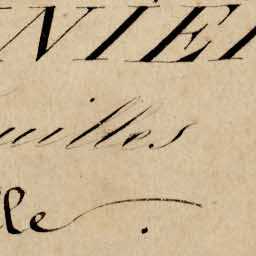 NIER
uilles
lle.